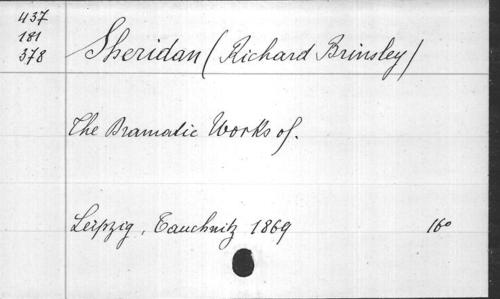 437
181
378
Sheridan (Richard Brinsley)
The Dramatic Works of.
Leipzig, Tauchnitz 1869 16°